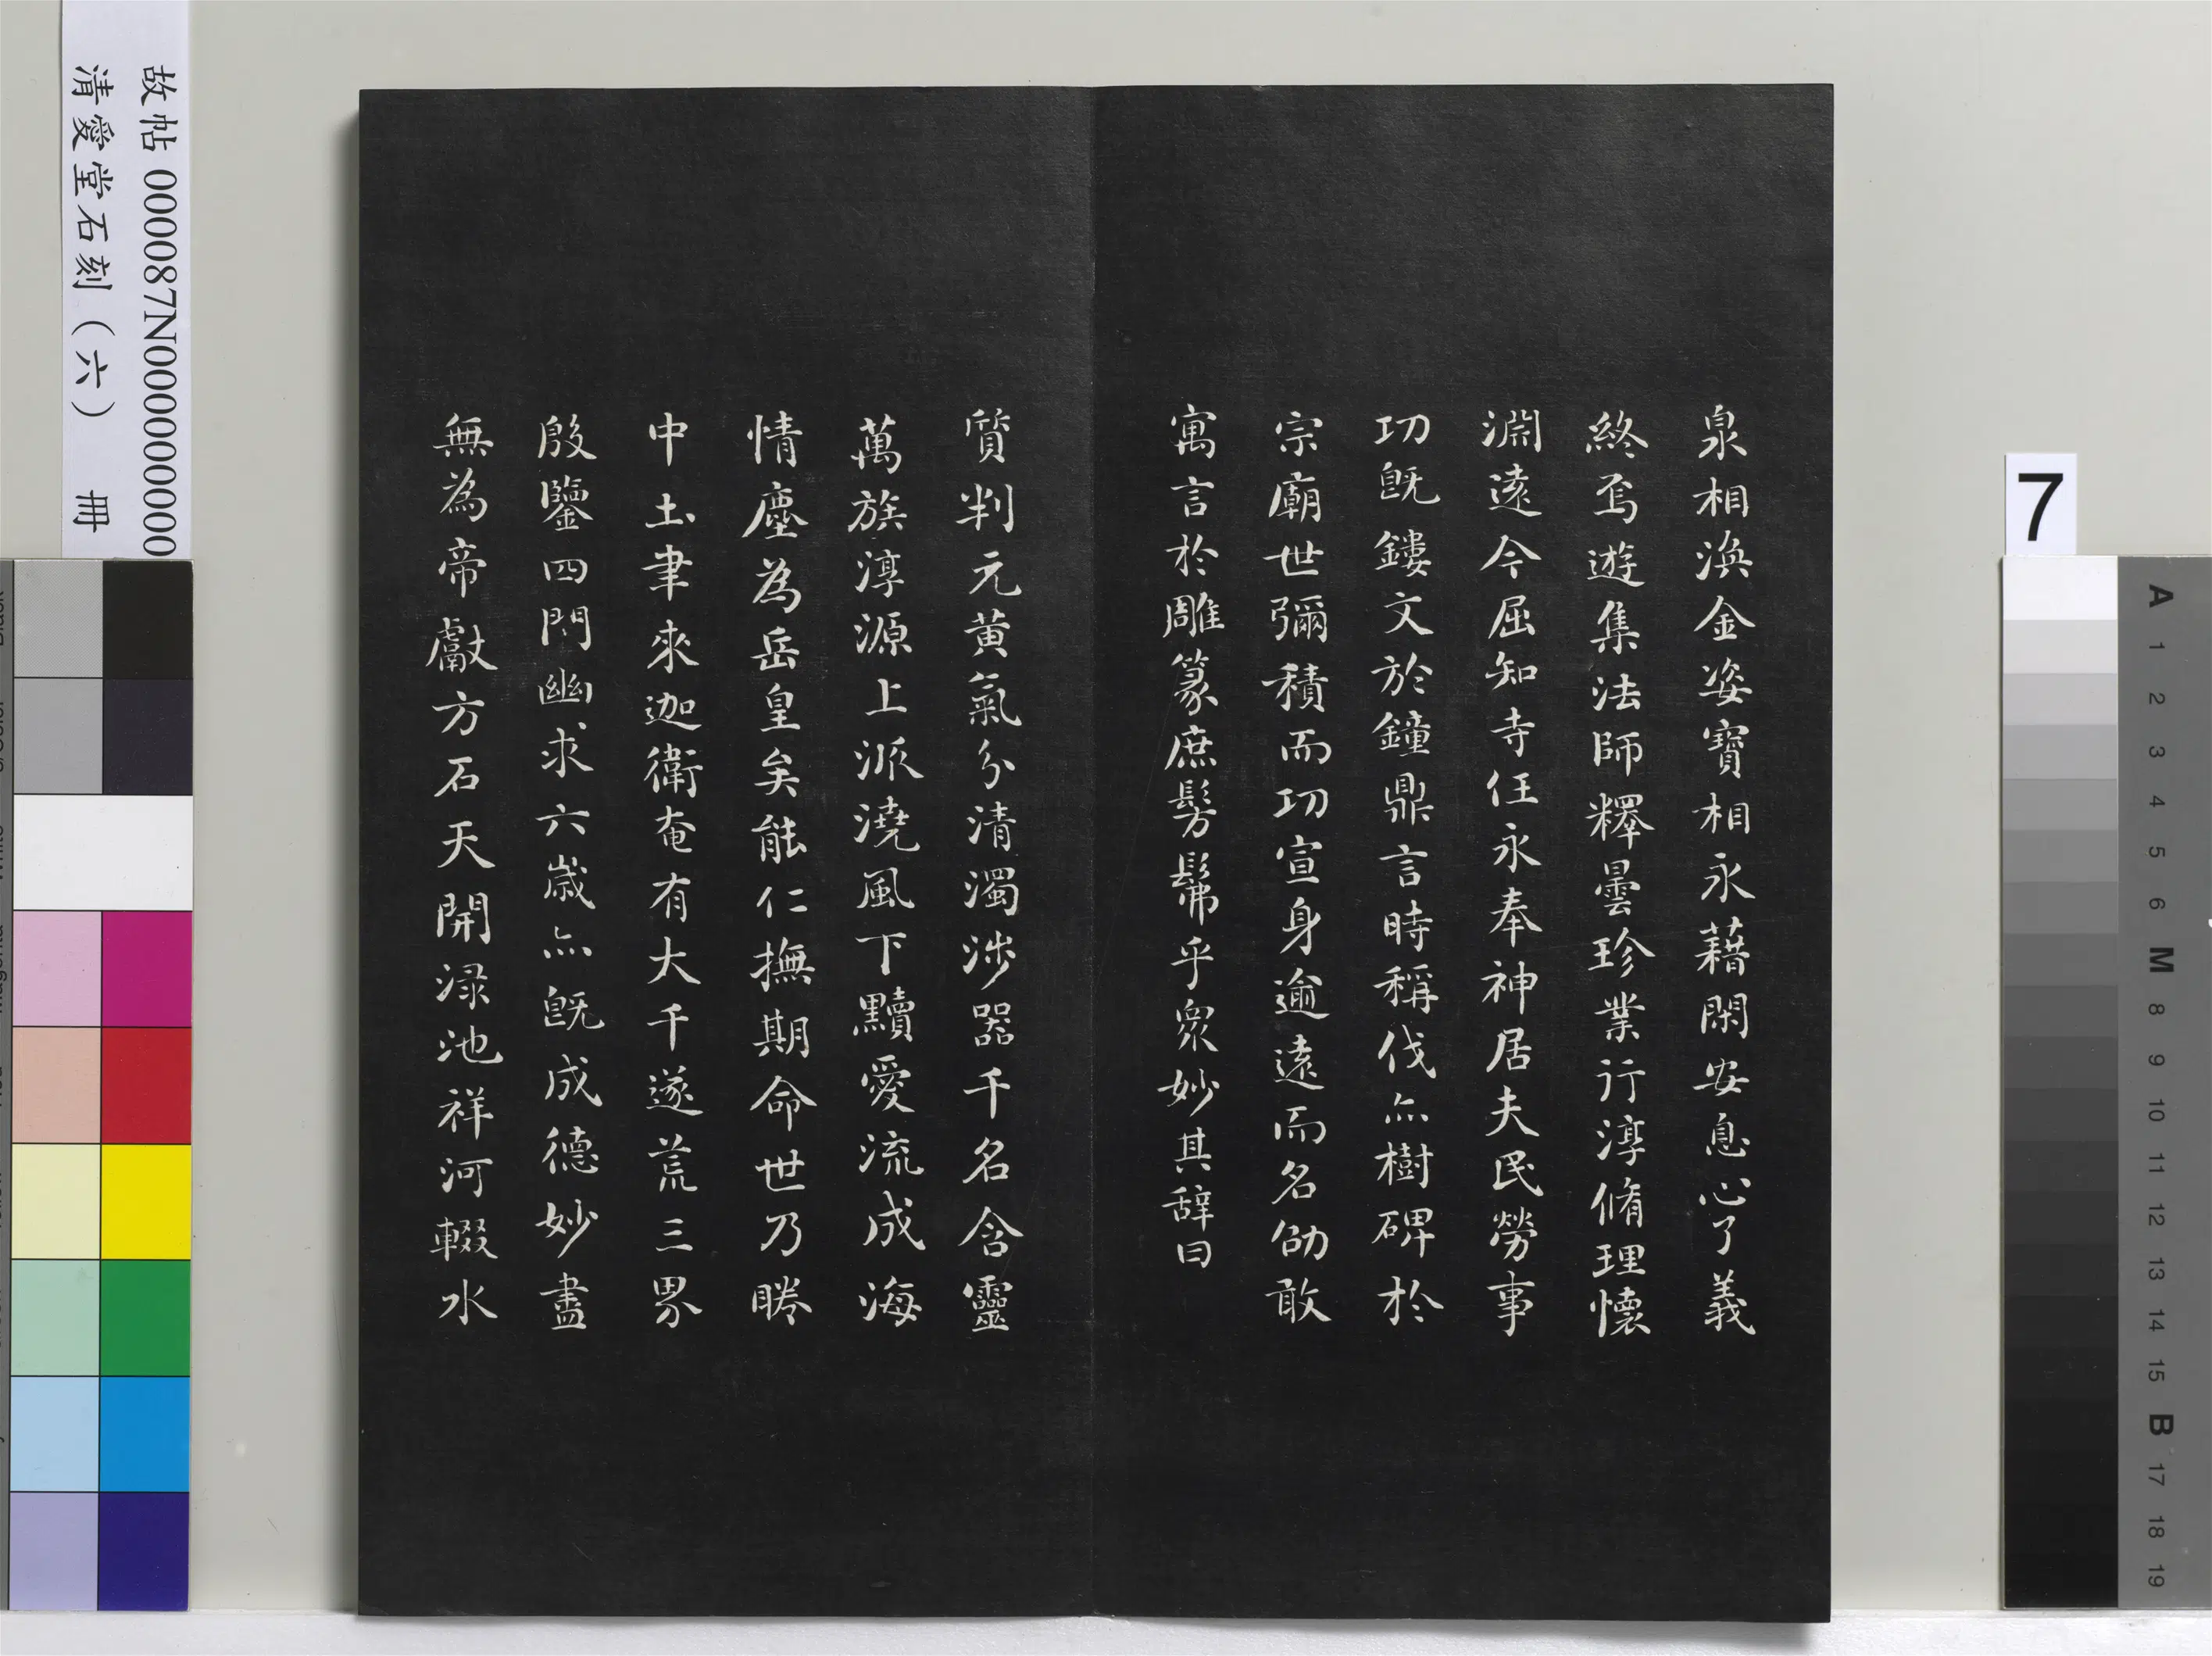 泉相渙金姿寶相永藉閑安息心了義
終焉遊集法師釋曇珍業行淳脩理懷
淵遠今屈知寺任永奉神居夫民勞事
功既鏤文於鐘鼎言時稱伐亦樹碑於
宗廟世彌積而功宣身逾遠而名劭敢
寓言於雕篆庶髣髴乎眾妙其辭曰
質判元黃氣分清濁涉器千名含靈
萬族淳源上派澆風下黷愛流成海
情塵為岳皇矣能仁撫期命世乃睠
中土聿來迦衛奄有大千遂荒三界
殷鑒四門幽求六歲亦既成德妙盡
無為帝獻方石天開淥池祥河輟水
故帖 000087N000000000
清愛堂石刻（六） 冊
7
A
1
2
3
4
5
6
M
8
9
10
11
12
13
14
15
B
17
18
19